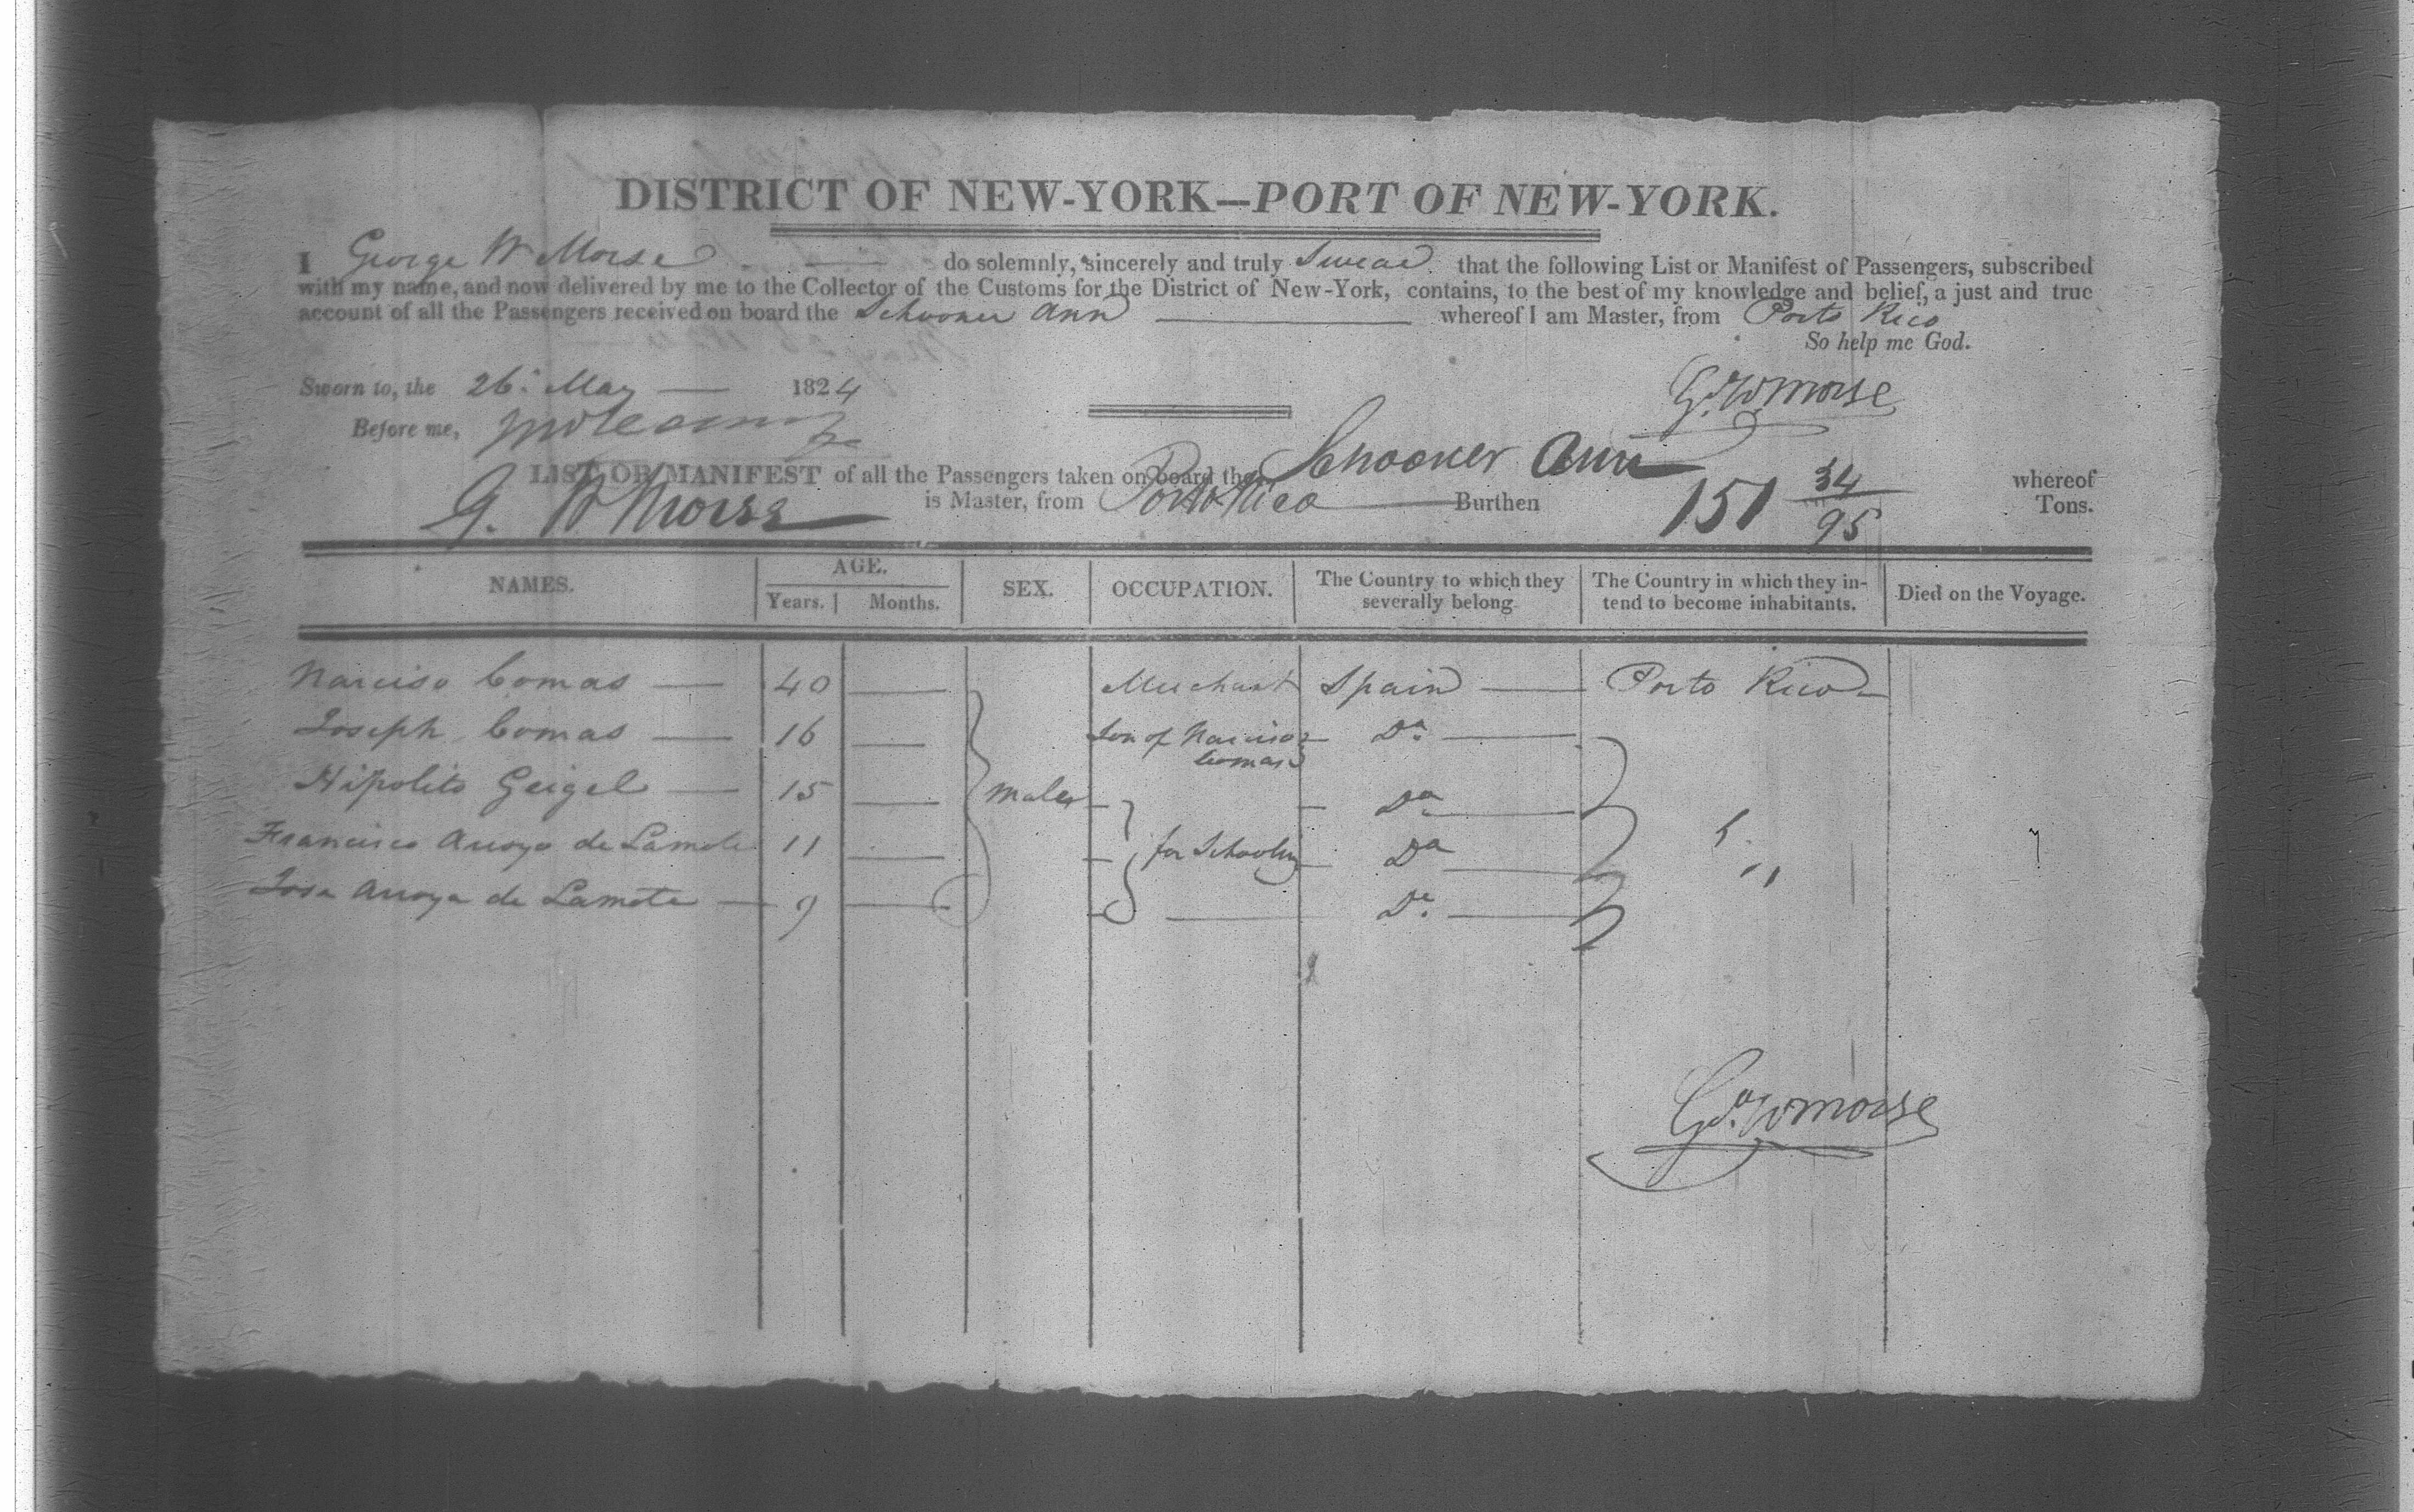 DISTRICT OF NEW-YORK—PORT OF NEW-YORK.
I George W Morse do solemnly, sincerely and truly Swear that the following List or Manifest of Passengers, subscribed
with my name, and now delivered by me to the Collector of the Customs for the District of New-York, contains, to the best of my knowledge and belief, a just and true
account of all the Passengers received on board the Schooner Ann whereof I am Master, from Porto Rico
So help me God.
Sworn to, the 26. May 1824
Geo. W. Morse
Before me,
LIST OR MANIFEST of all the Passengers taken on board the Schooner Ann whereof
G. W Morse is Master, from Porto Rico Burthen 151 34/95 Tons.
NAMES. AGE. Years. Months. SEX. OCCUPATION. The Country to which they severally belong. The Country in which they intend to become inhabitants. Died on the Voyage.
Narciso Comas — 40 — Merchant Spain — Porto Rico
Joseph Comas — 16 — Son of Narciso Comas Do. —
Hipolito Geigel — 15 — Males Do —
Francisco Arroyo de Lamote 11 — for Schooling Do —
Jose Arroyo de Lamote — 9 — Do. —
Geo. W Morse